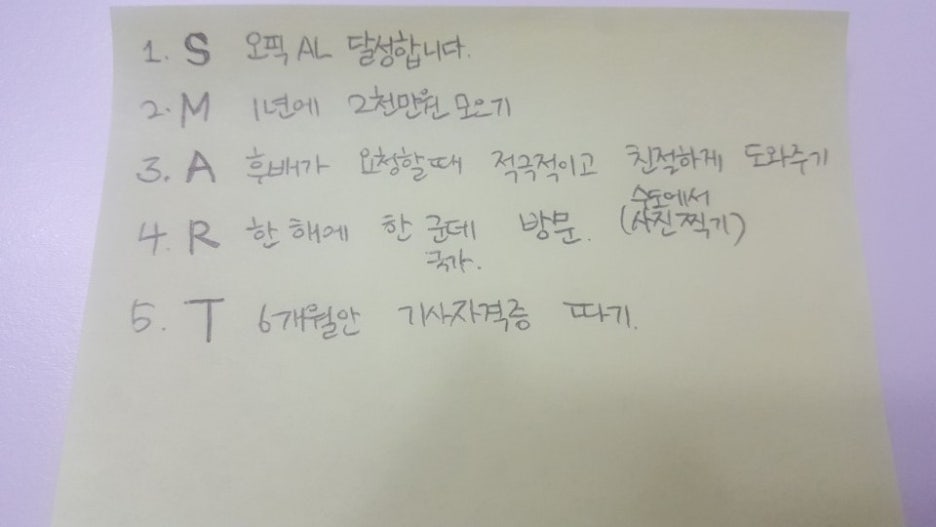 1. S 오픽 AL 달성합니다.
2. M 1년에 2천만원 모으기
3. A 후배가 요청할때 적극적이고 친절하게 도와주기
4. R 한 해에 한 군데 방문. (사진찍기)
국가. 수도에서
5. T 6개월안 기사자격증 따기.